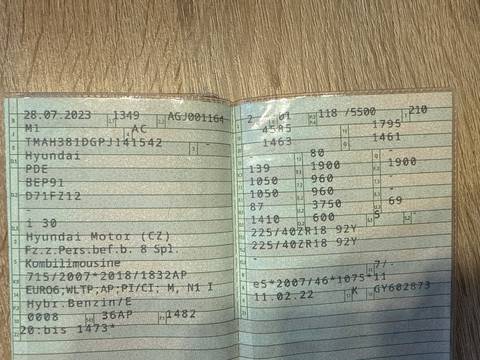 28.07.2023 1349 AGJ001164
M1 AC
TMAH381DGPJ141542 -
Hyundai
PDE
BEP91
D71FZ12
-
i 30
Hyundai Motor (CZ)
Fz.z.Pers.bef.b. 8 Spl.
Kombilimousine
715/2007*2018/1832AP
EURO6;WLTP;AP;PI/CI; M, N1 I
Hybr.Benzin/E
0008 36AP 1482
20:bis 1473*
2 01 118 /5500 210
4585 1795
1463 1461
80
139 1900 1900
1050 960 -
1050 960 -
87 3750 69
1410 600 5 -
225/40ZR18 92Y
225/40ZR18 92Y
-
7/-
e5*2007/46*1075*11
11.02.22 K GY602873